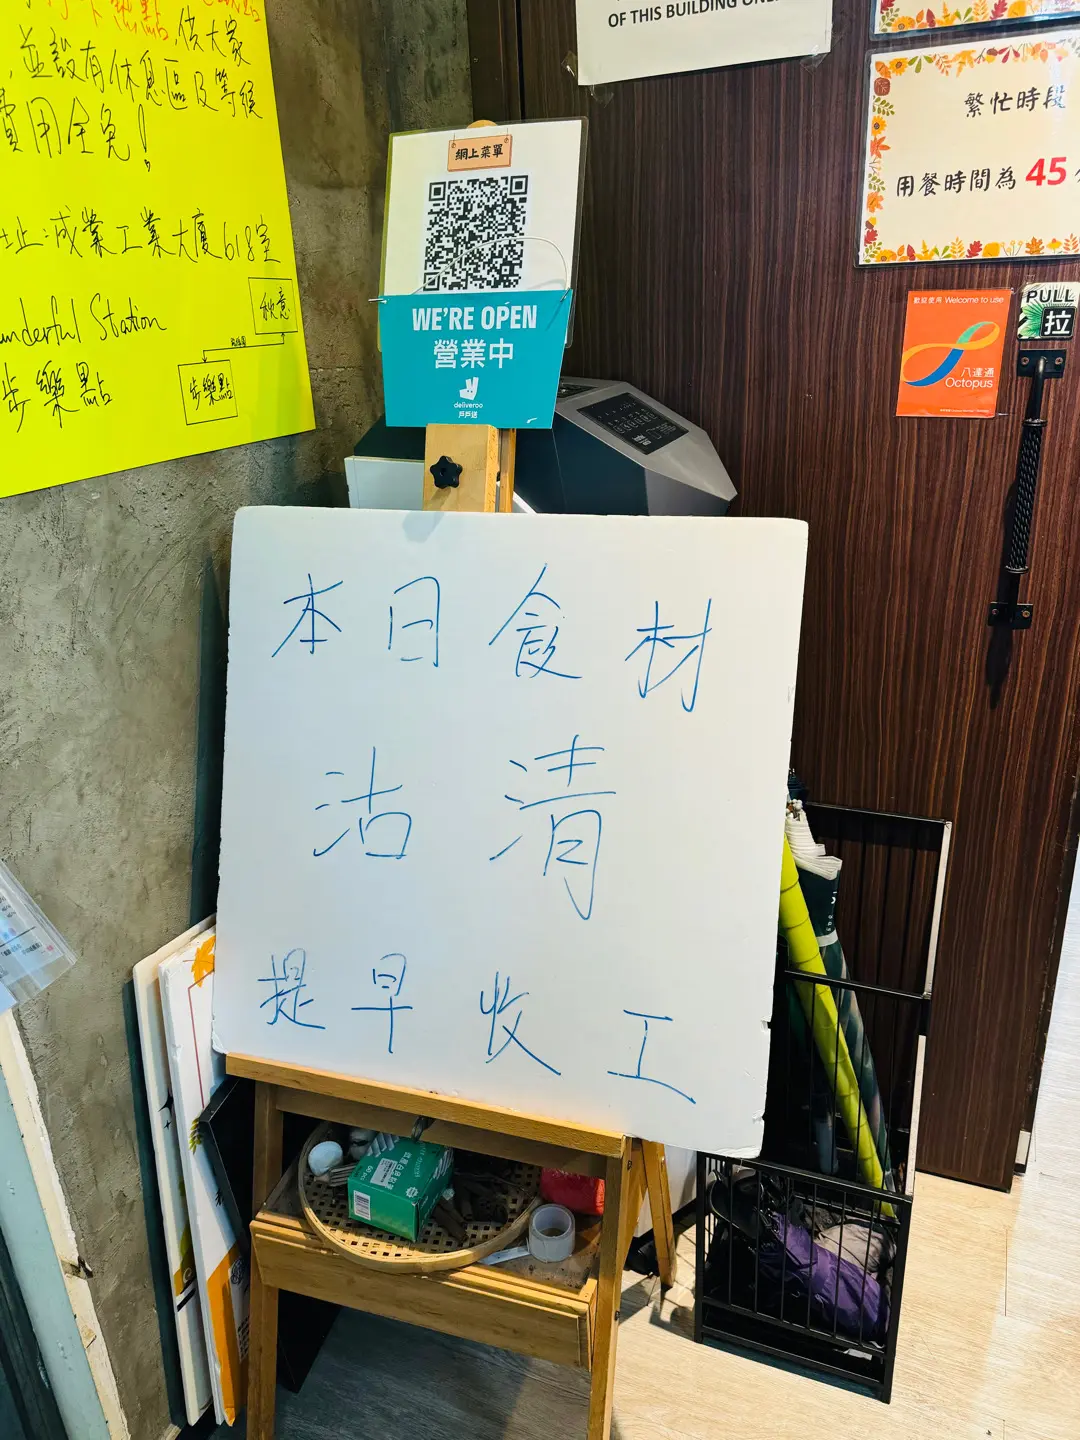 熱點
,並設有休息區及等候
費用全免!
址:成業工業大廈618室
秋意
underful Station
步樂點
步樂點
網上菜單
WE'RE OPEN
營業中
deliveroo
戶戶送
OF THIS BUILDING ON
繁忙時段
用餐時間為 45
歡迎使用 Welcome to use
八達通
Octopus
PULL
拉
本日食材
沽清
提早收工